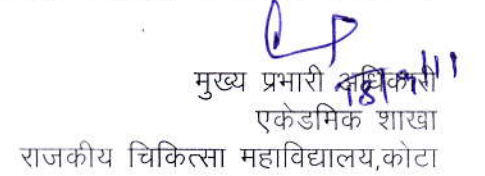 मुख्य प्रभारी अधिकारी
एकेडमिक शाखा
राजकीय चिकित्सा महाविद्यालय,कोटा